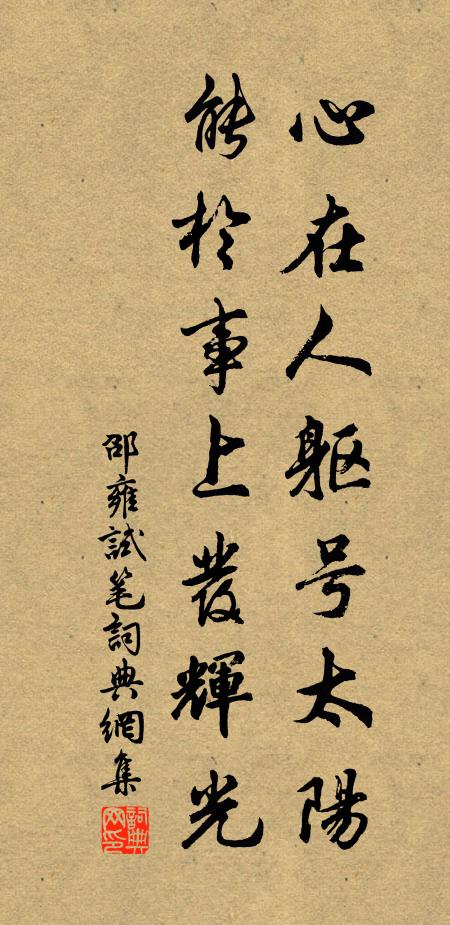 心在人躯号太陽
能於事上發輝光
邵雍試笔詞典網集
詞典网印